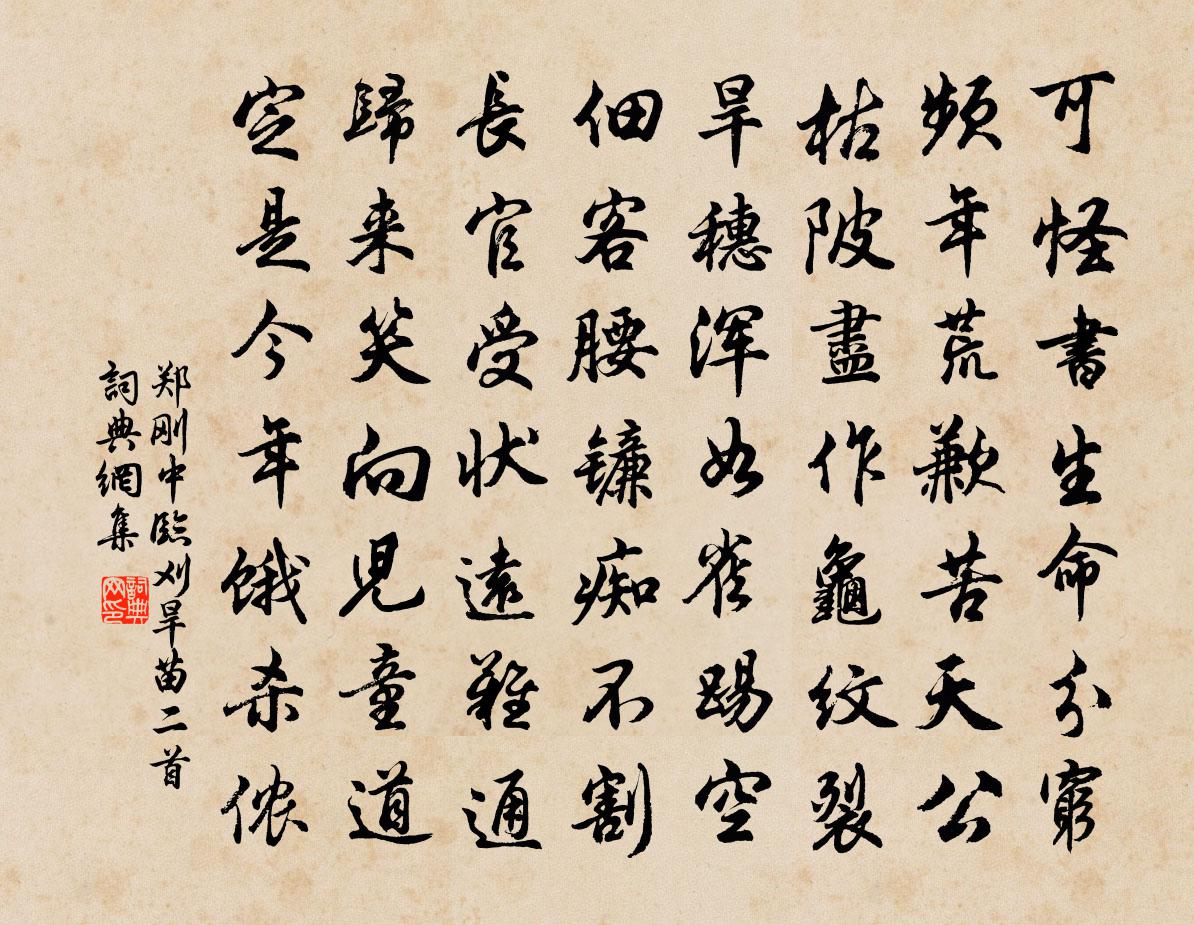 可怪書生命分窮
频年荒歉苦天公
枯陂盡作龜紋裂
旱穗浑如雀踢空
佃客腰镰痴不割
長官受状遠難通
歸来笑向兒童道
定是今年饿杀侬
郑刚中臨刈旱苗二首
詞典網集
詞典网印